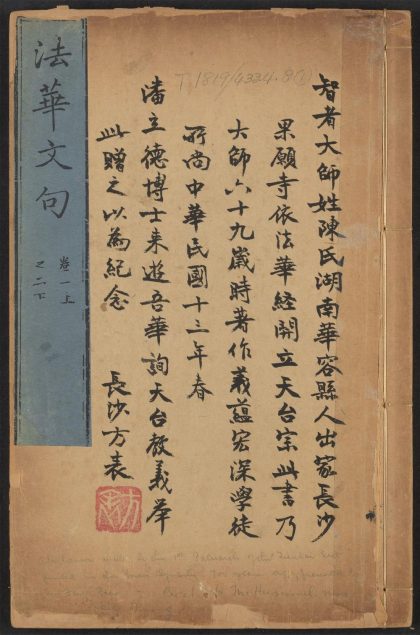 T 1819/4324.8(1)
智者大師姓陳氏湖南華容縣人出家長沙
果願寺依法華經開立天台宗此書乃
大師六十九歲時著作義蘊宏深學徒
所尚中華民國十三年春
潘立德博士来遊吾華詢天台教義舉
此贈之以為紀念 長沙方表
法華文句
卷一上
之二下